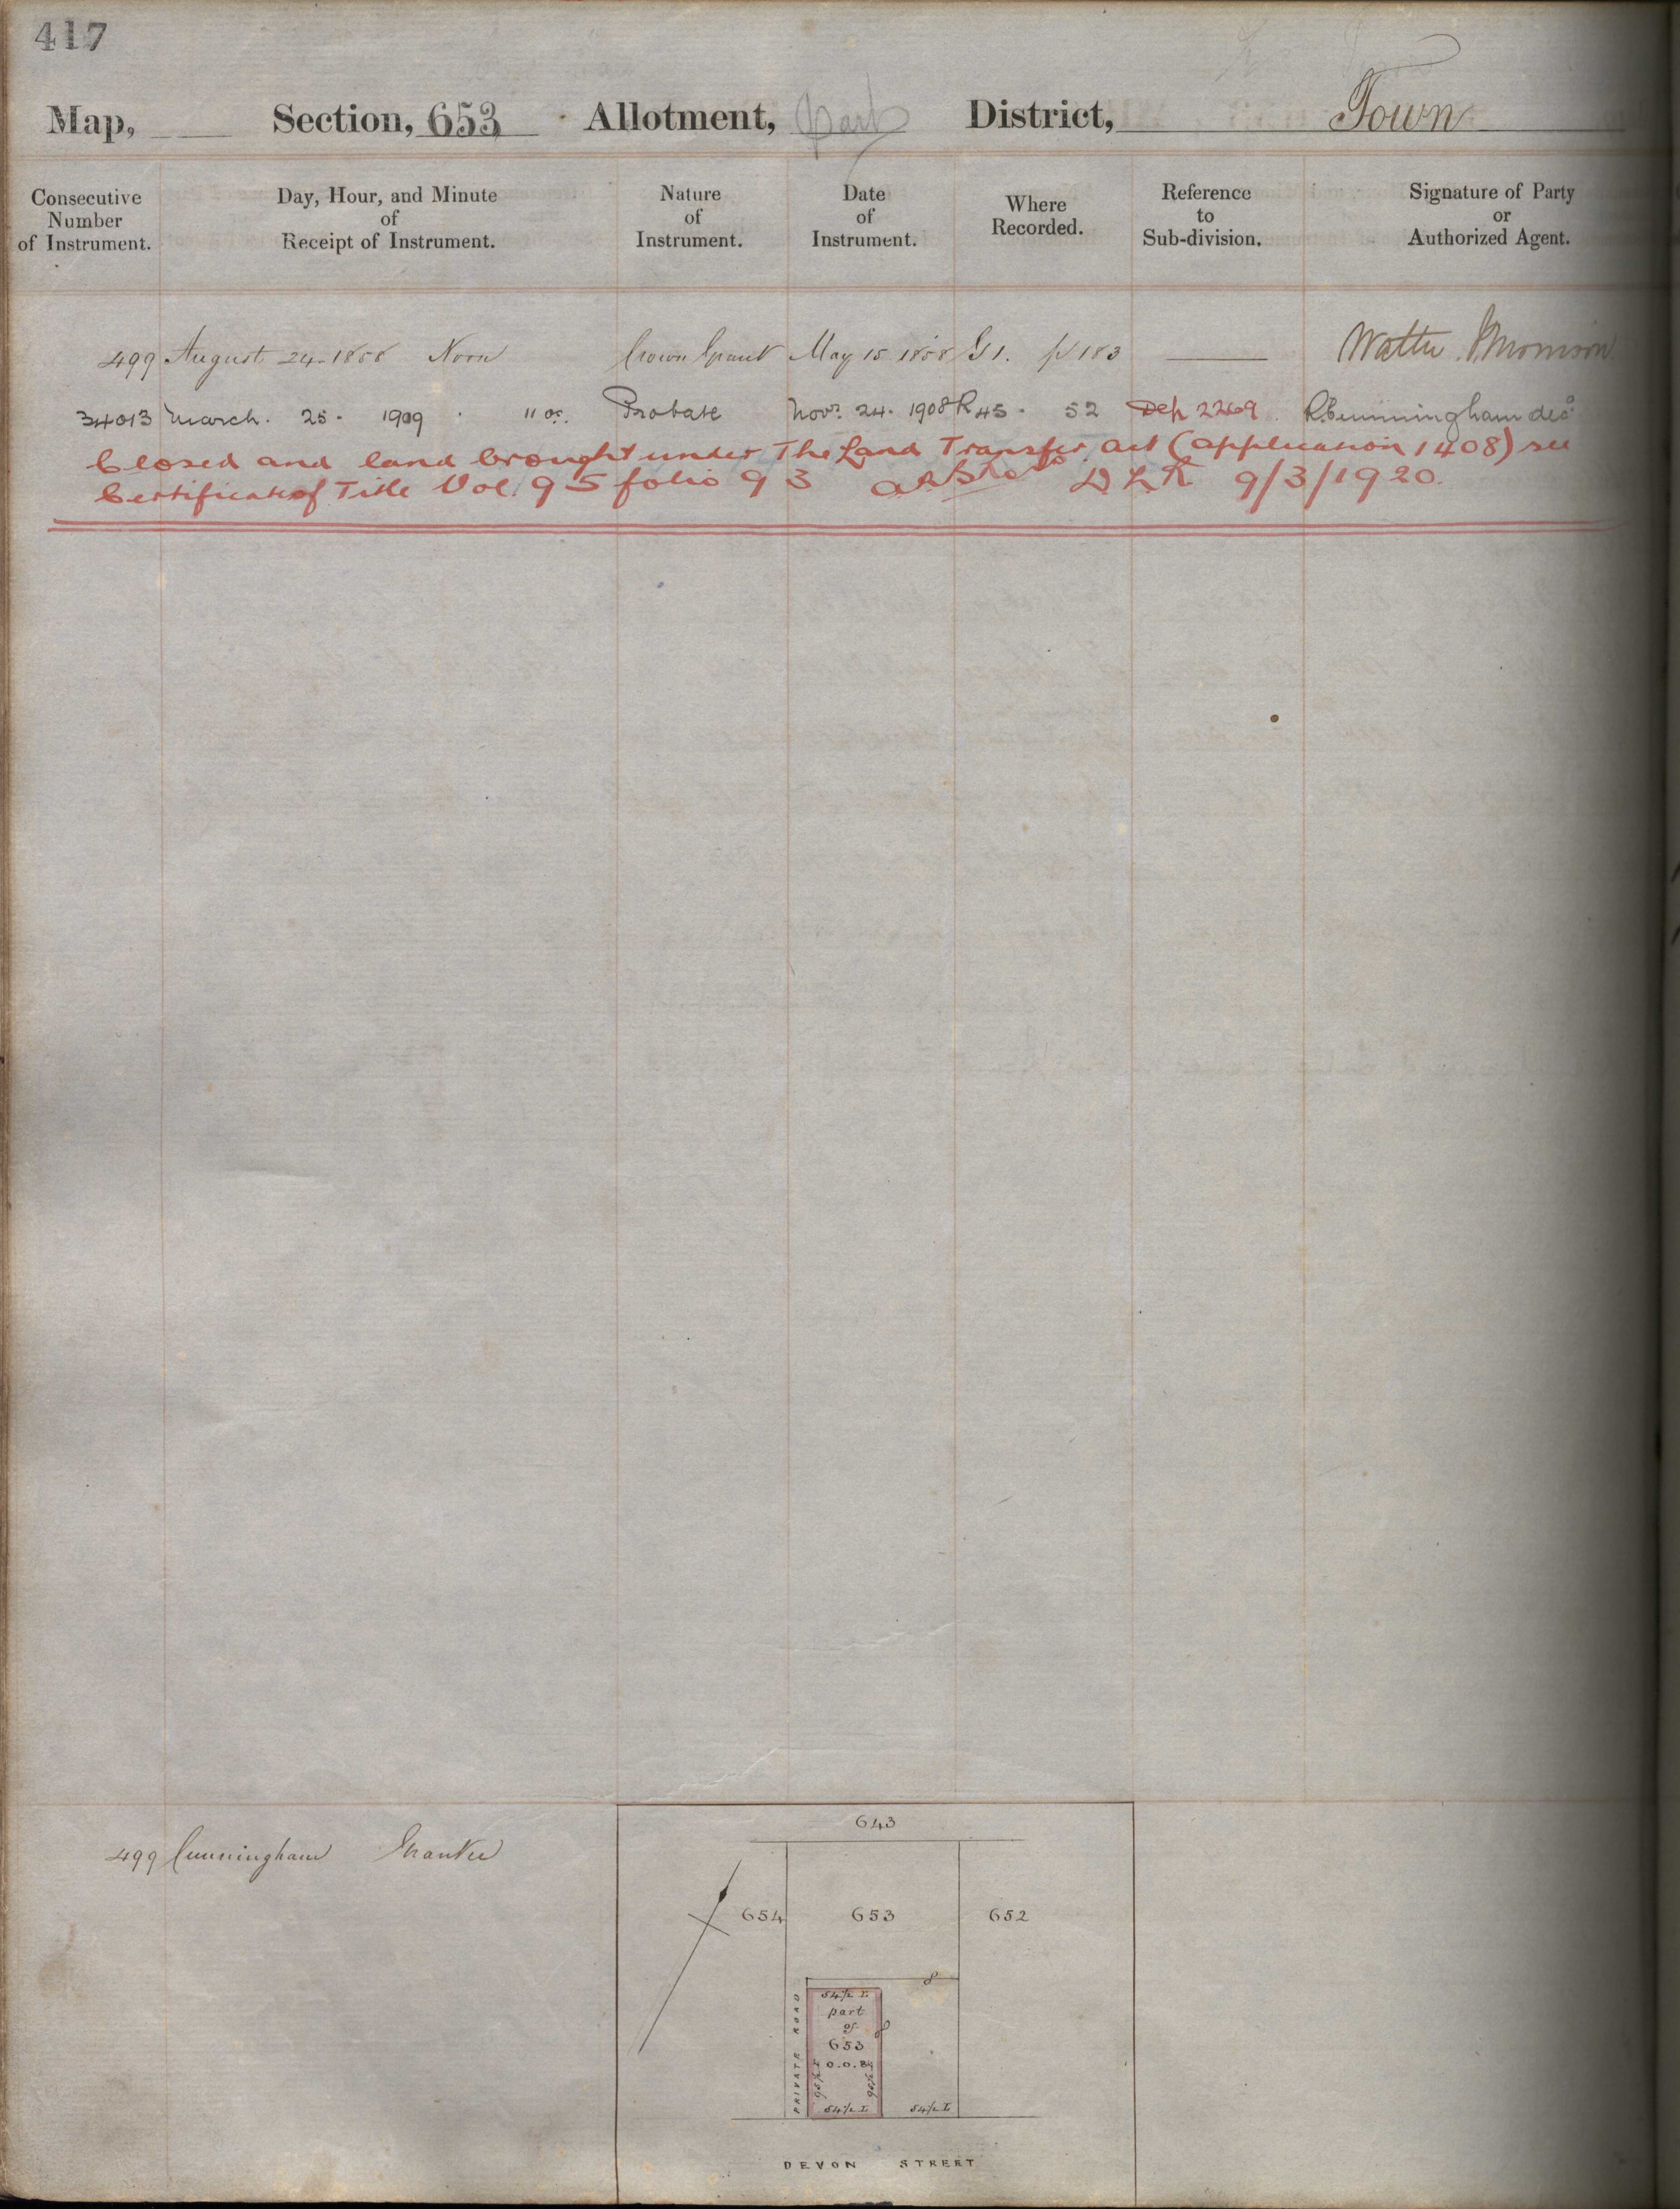 417
Map, Section, 653 Allotment, part District, Town
Consecutive Number of Instrument. Day, Hour, and Minute of Receipt of Instrument. Nature of Instrument. Date of Instrument. Where Recorded. Reference to Sub-division. Signature of Party or Authorized Agent.
499 August 24-1858 Noon Crown Grant May 15 1858 G1. p 183 Walter Morrison
34013 March. 25. 1909 11 Probate Novr. 24. 1908 R 45. 52 Dep 2269 R Cunningham decd
Closed and land brought under The Land Transfer Act (application 1408) see
Certificate of Title Vol. 95 folio 93 DLR 9/3/1920.
499 Cunningham Grantee
643
654 653 652
54½ L
part
of
653
0.0.84
PRIVATE ROAD
95½ L
95½ L
54½ L 54½ L
DEVON STREET